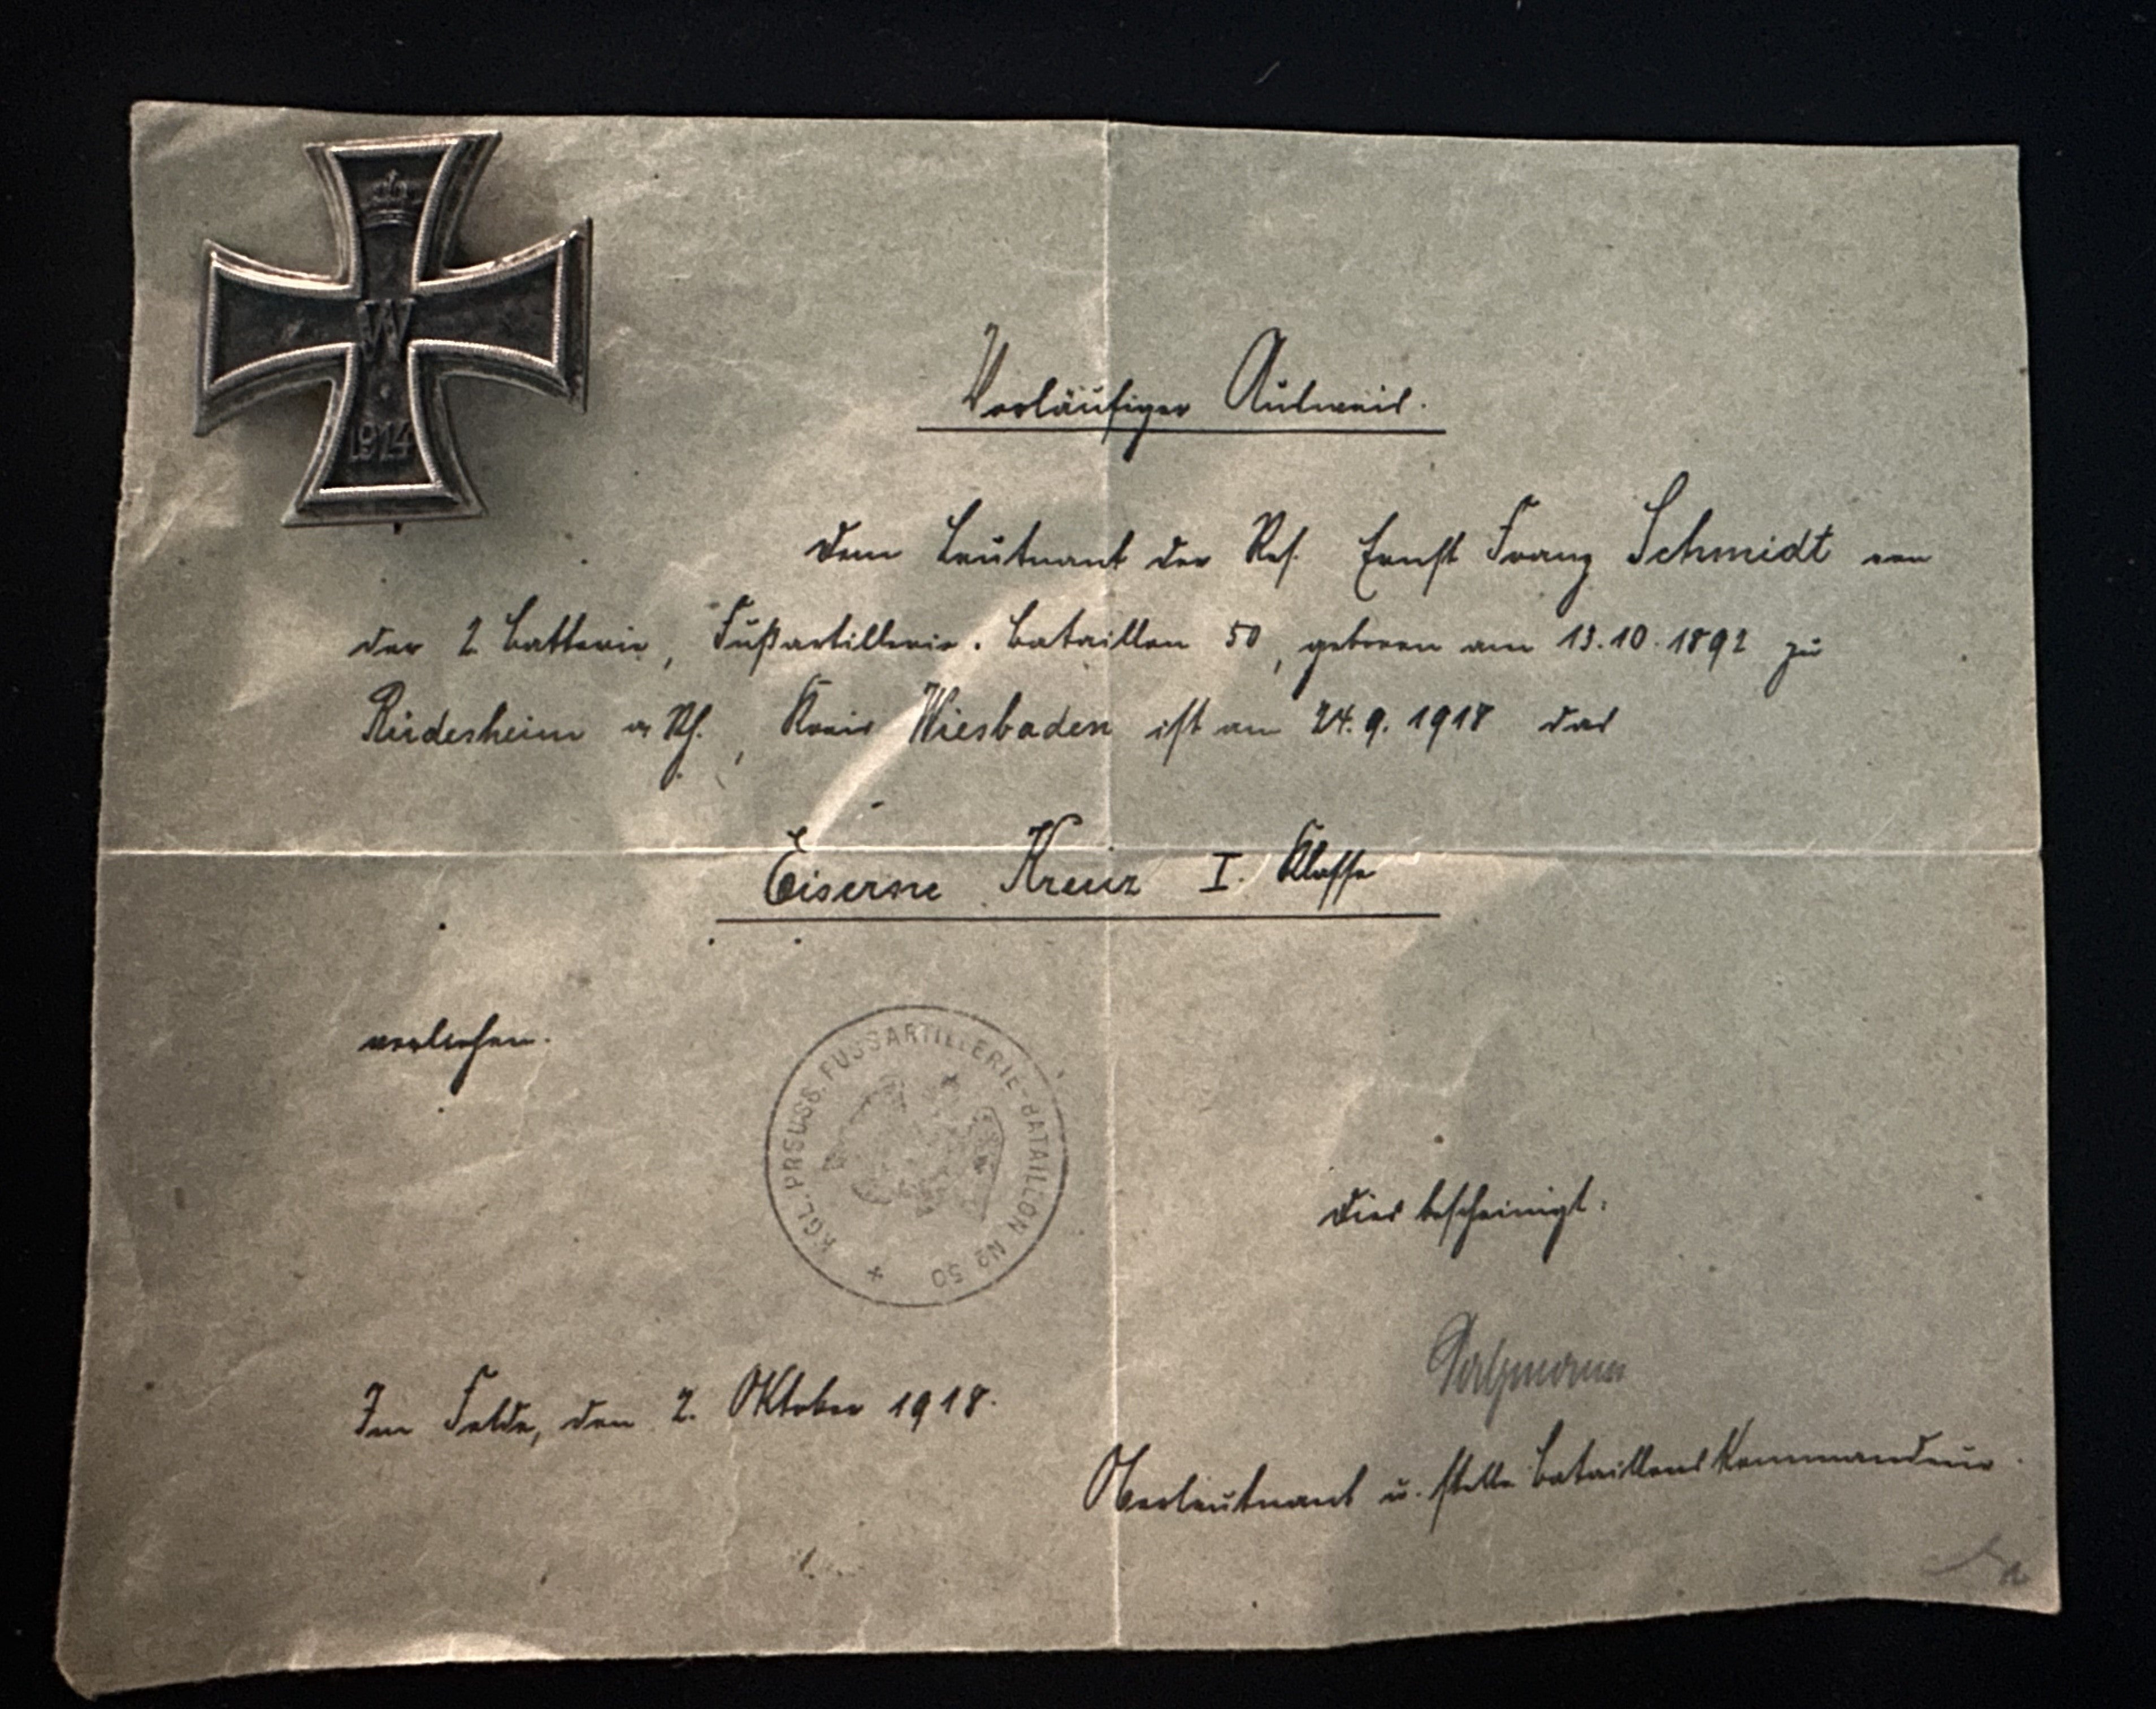 W
1914
Vorläufiger Ausweis.
Dem Leutnant der Res. Ernst Franz Schmidt von
der 2. Batterie, Fußartillerie-Bataillon 50, geboren am 13.10.1892 zu
Rüdesheim a Rh., Kreis Wiesbaden ist am 24.9.1918 das
Eiserne Kreuz I. Klasse
verliehen.
KGL. PREUSS. FUSSARTILLERIE-BATAILLON No 50
Dies bescheinigt:
Im Felde, den 2. Oktober 1918.
Oberleutnant u. stellv. Bataillonskommandeur.